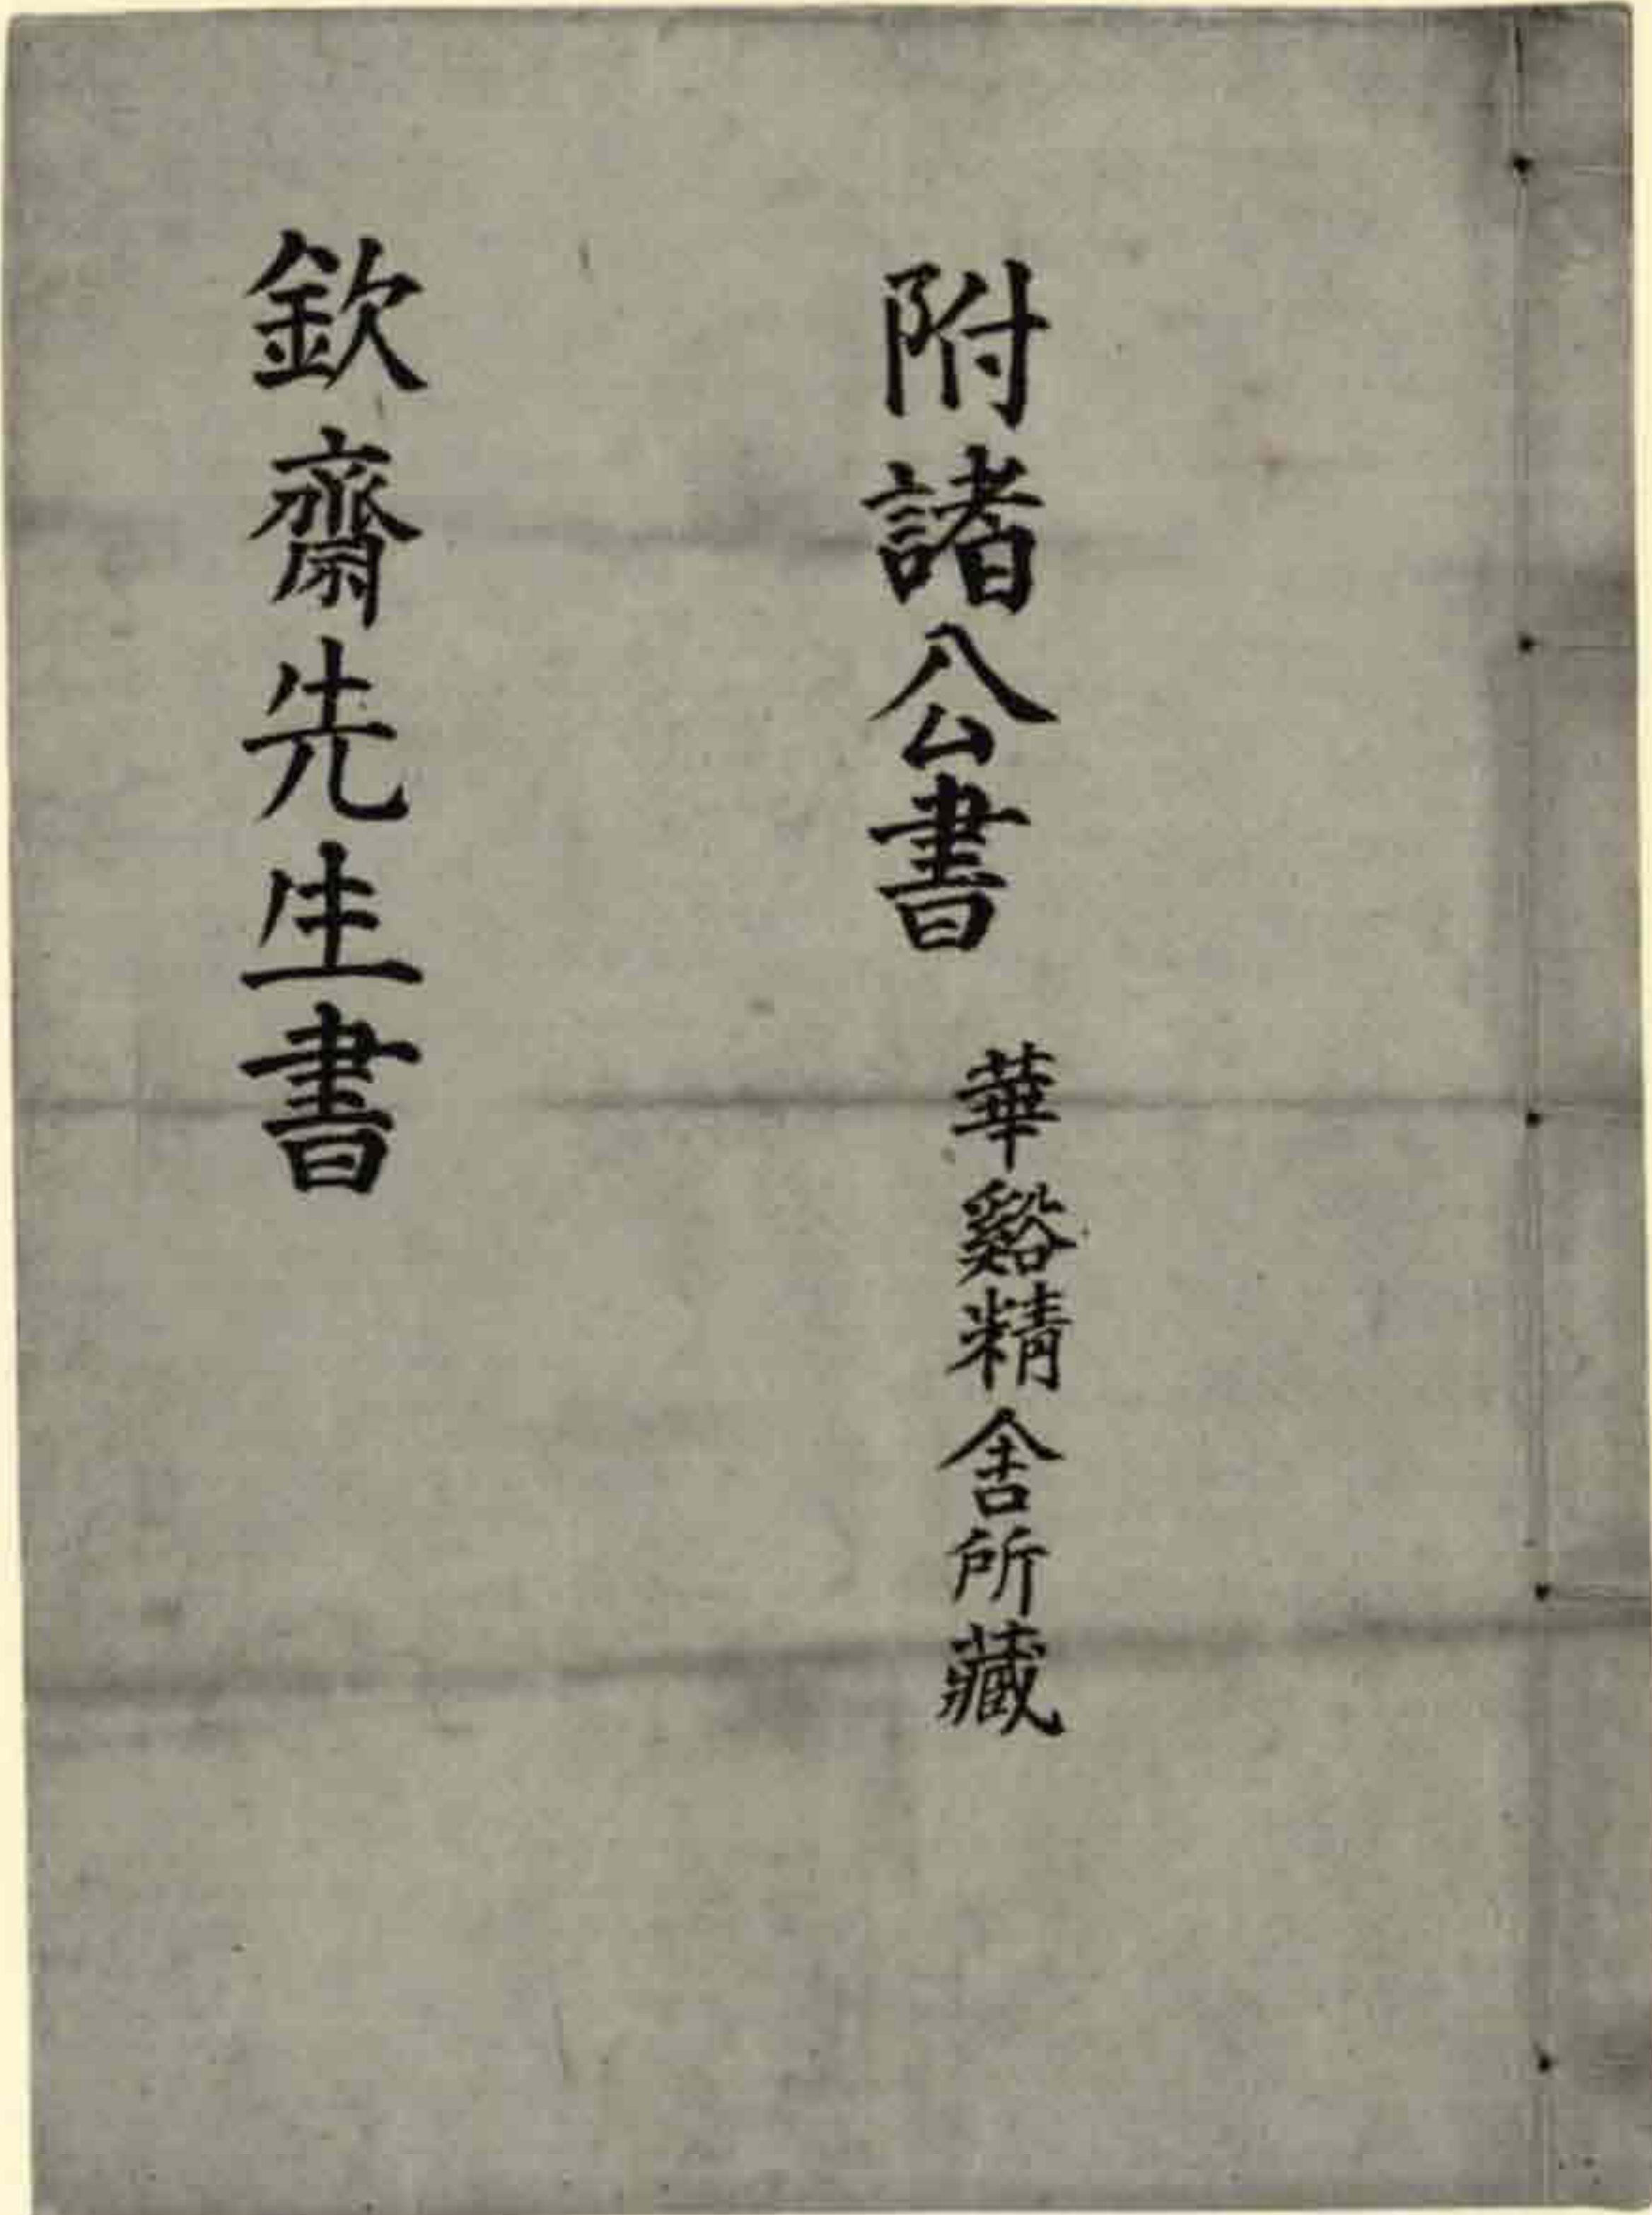 附諸公書 華谿精舍所藏
欽齋先生書